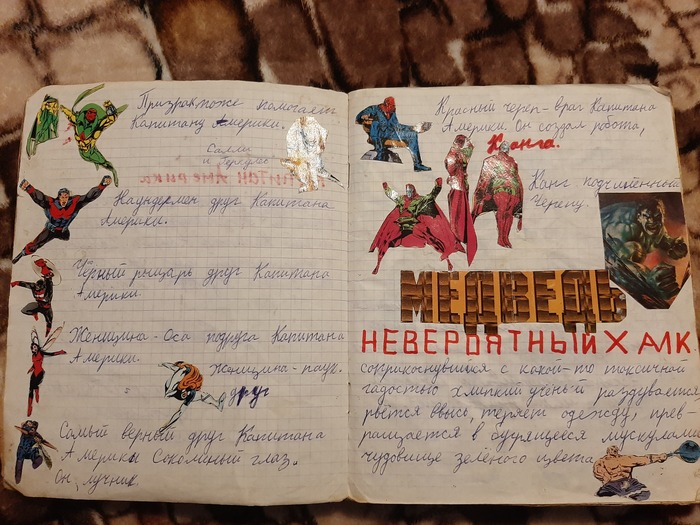 Призрак тоже помогает
Капитану Америки.
Самли
и Геркулес
Капитан Америка
Наундермен друг Капитана
Америки.
Чёрный рыцарь друг Капитана
Америки.
Женщина-Оса подруга Капитана
Америки.
Женщина-паук.
друг
Самый верный друг Капитана
Америки Соколиный глаз.
Он, лучник.
Красный череп-враг Капитана
Америки. Он создал робота,
Канга.
Канг подчинённый
Черепу.
МЕДВЕДЬ
НЕВЕРОЯТНЫЙ ХАЛК
соприкоснувшийся с какой-то токсичной
гадостью хлипкий учёный раздувается
рвётся ввысь, теряет одежду, прев-
ращается в бугрящееся мускулами
чудовище зелёного цвета